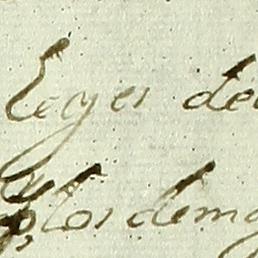 Leyes de
y los dema